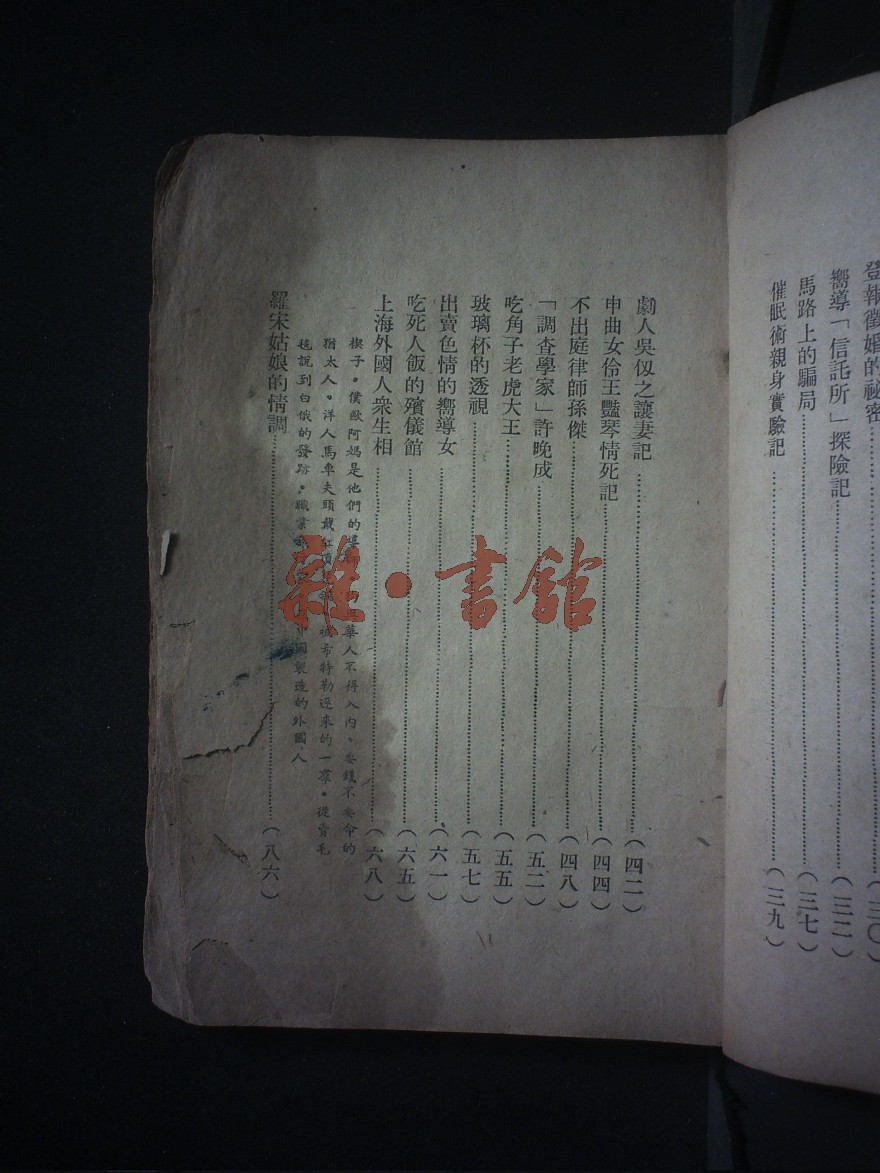 登報徵婚的祕密……(三〇)
嚮導「信託所」探險記……(三二)
馬路上的騙局……(三七)
催眠術親身實驗記……(三九)
劇人吳仭之讓妻記……(四二)
申曲女伶王豔琴情死記……(四四)
不出庭律師孫傑……(四八)
「調查學家」許晚成……(五二)
吃角子老虎大王……(五五)
玻璃杯的透視……(五七)
出賣色情的嚮導女……(六一)
吃死人飯的殯儀館……(六五)
上海外國人衆生相……(六八)
楔子。僕歐阿媽是他們的導師 華人不得入內。要錢不要命的
猶太人。洋人馬車夫頭戴紅頂 布特勒逐來的一羣。從賣毛
毯說到白俄的發跡。職業 國製造的外國人
羅宋姑娘的情調……(八六)
雜·書館